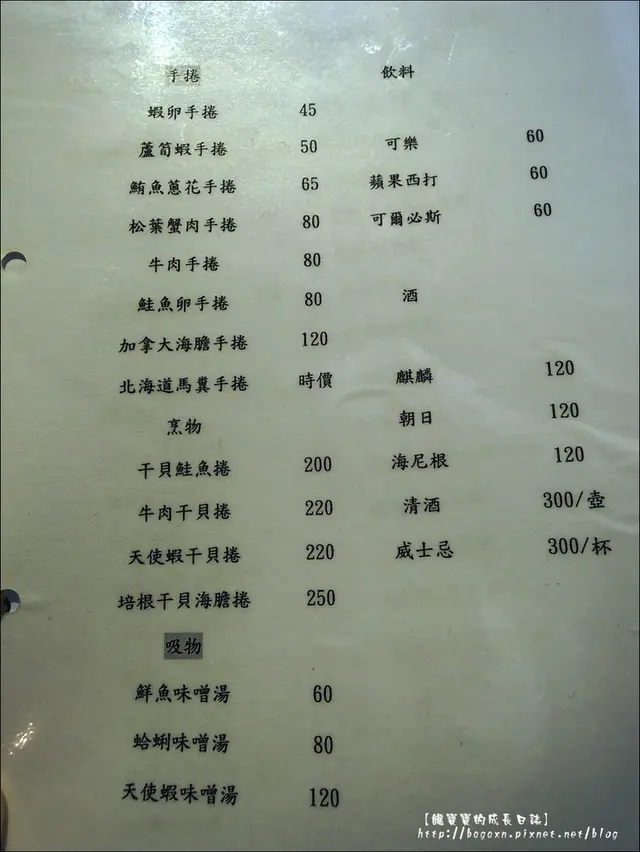 手捲
蝦卵手捲 45
蘆筍蝦手捲 50
鮪魚蔥花手捲 65
松葉蟹肉手捲 80
牛肉手捲 80
鮭魚卵手捲 80
加拿大海膽手捲 120
北海道馬糞手捲 時價
烹物
干貝鮭魚捲 200
牛肉干貝捲 220
天使蝦干貝捲 220
培根干貝海膽捲 250
吸物
鮮魚味噌湯 60
蛤蜊味噌湯 80
天使蝦味噌湯 120
飲料
可樂 60
蘋果西打 60
可爾必斯 60
酒
麒麟 120
朝日 120
海尼根 120
清酒 300/壺
威士忌 300/杯
【饞寶寶的成長日誌】
http://bogoxn.pixnet.net/blog